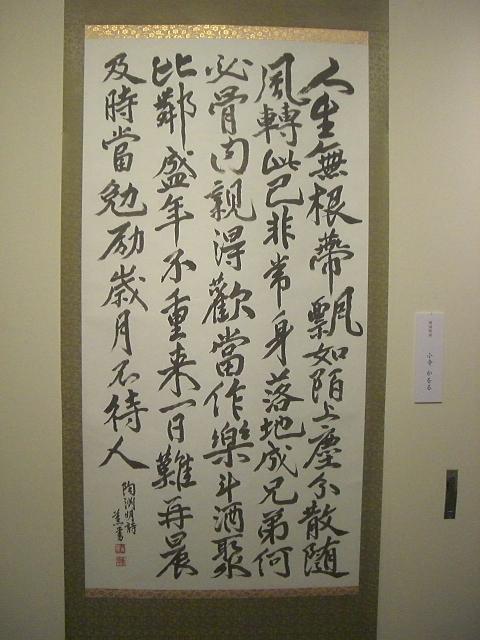 人生無根蔕飄如陌上塵分散随
風轉此已非常身落地成兄弟何
必骨肉親得歡當作樂斗酒聚
比鄰盛年不重来一日難再晨
及時當勉励歳月不待人
陶渕明詩
小寺 かをる